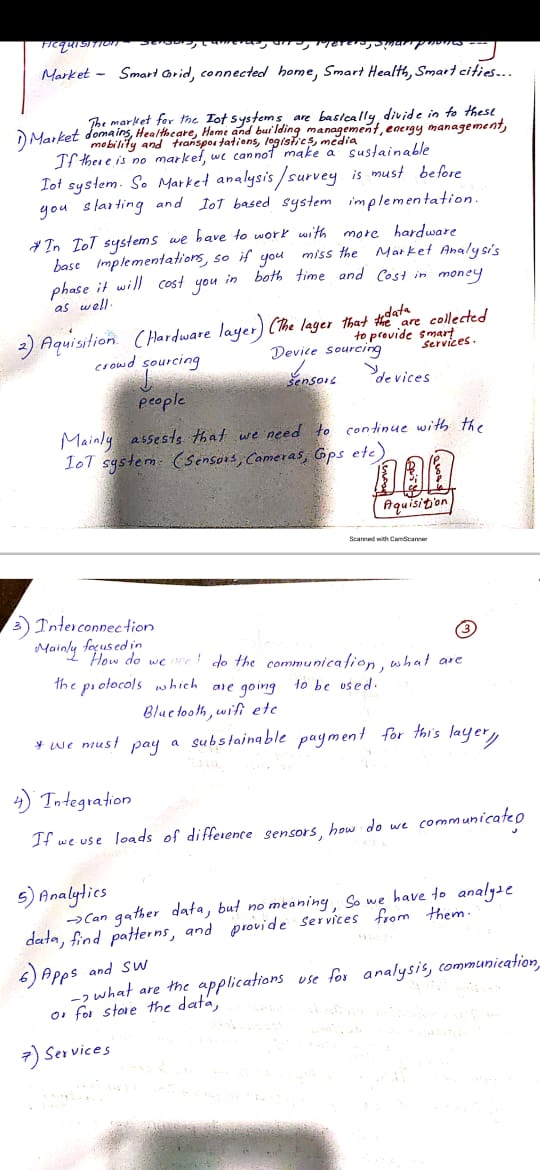 Market - Smart Grid, connected home, Smart Health, Smart cities...
The market for the Iot systems are basically divide in to these
1) Market domains, Healthcare, Home and building management, energy management,
mobility and transportations, logistics, media
If there is no market, we cannot make a sustainable
Iot system. So Market analysis/survey is must before
you starting and IOT based system implementation.
* In IoT systems we have to work with more hardware
base implementations, so if you miss the Market Analysis
phase it will cost you in both time and Cost in money
as well.
2) Aquisition. (Hardware layer) (The layer that the data are collected
to provide smart services.
crowd sourcing Device sourcing
sensors devices
people
Mainly assests that we need to continue with the
IoT system. (Sensors, Cameras, Gps etc)
Aquisition
Scanned with CamScanner
3) Interconnection
3
Mainly focused in
How do we do the communication, what are
the protocols which are going to be used.
Bluetooth, wifi etc
* we must pay a substainable payment for this layer,,
4) Integration
If we use loads of difference sensors, how do we communicate?
5) Analytics
→ Can gather data, but no meaning, So we have to analyze
data, find patterns, and provide services from them.
6) Apps and SW
→ what are the applications use for analysis, communication,
or for store the data,
7) Services